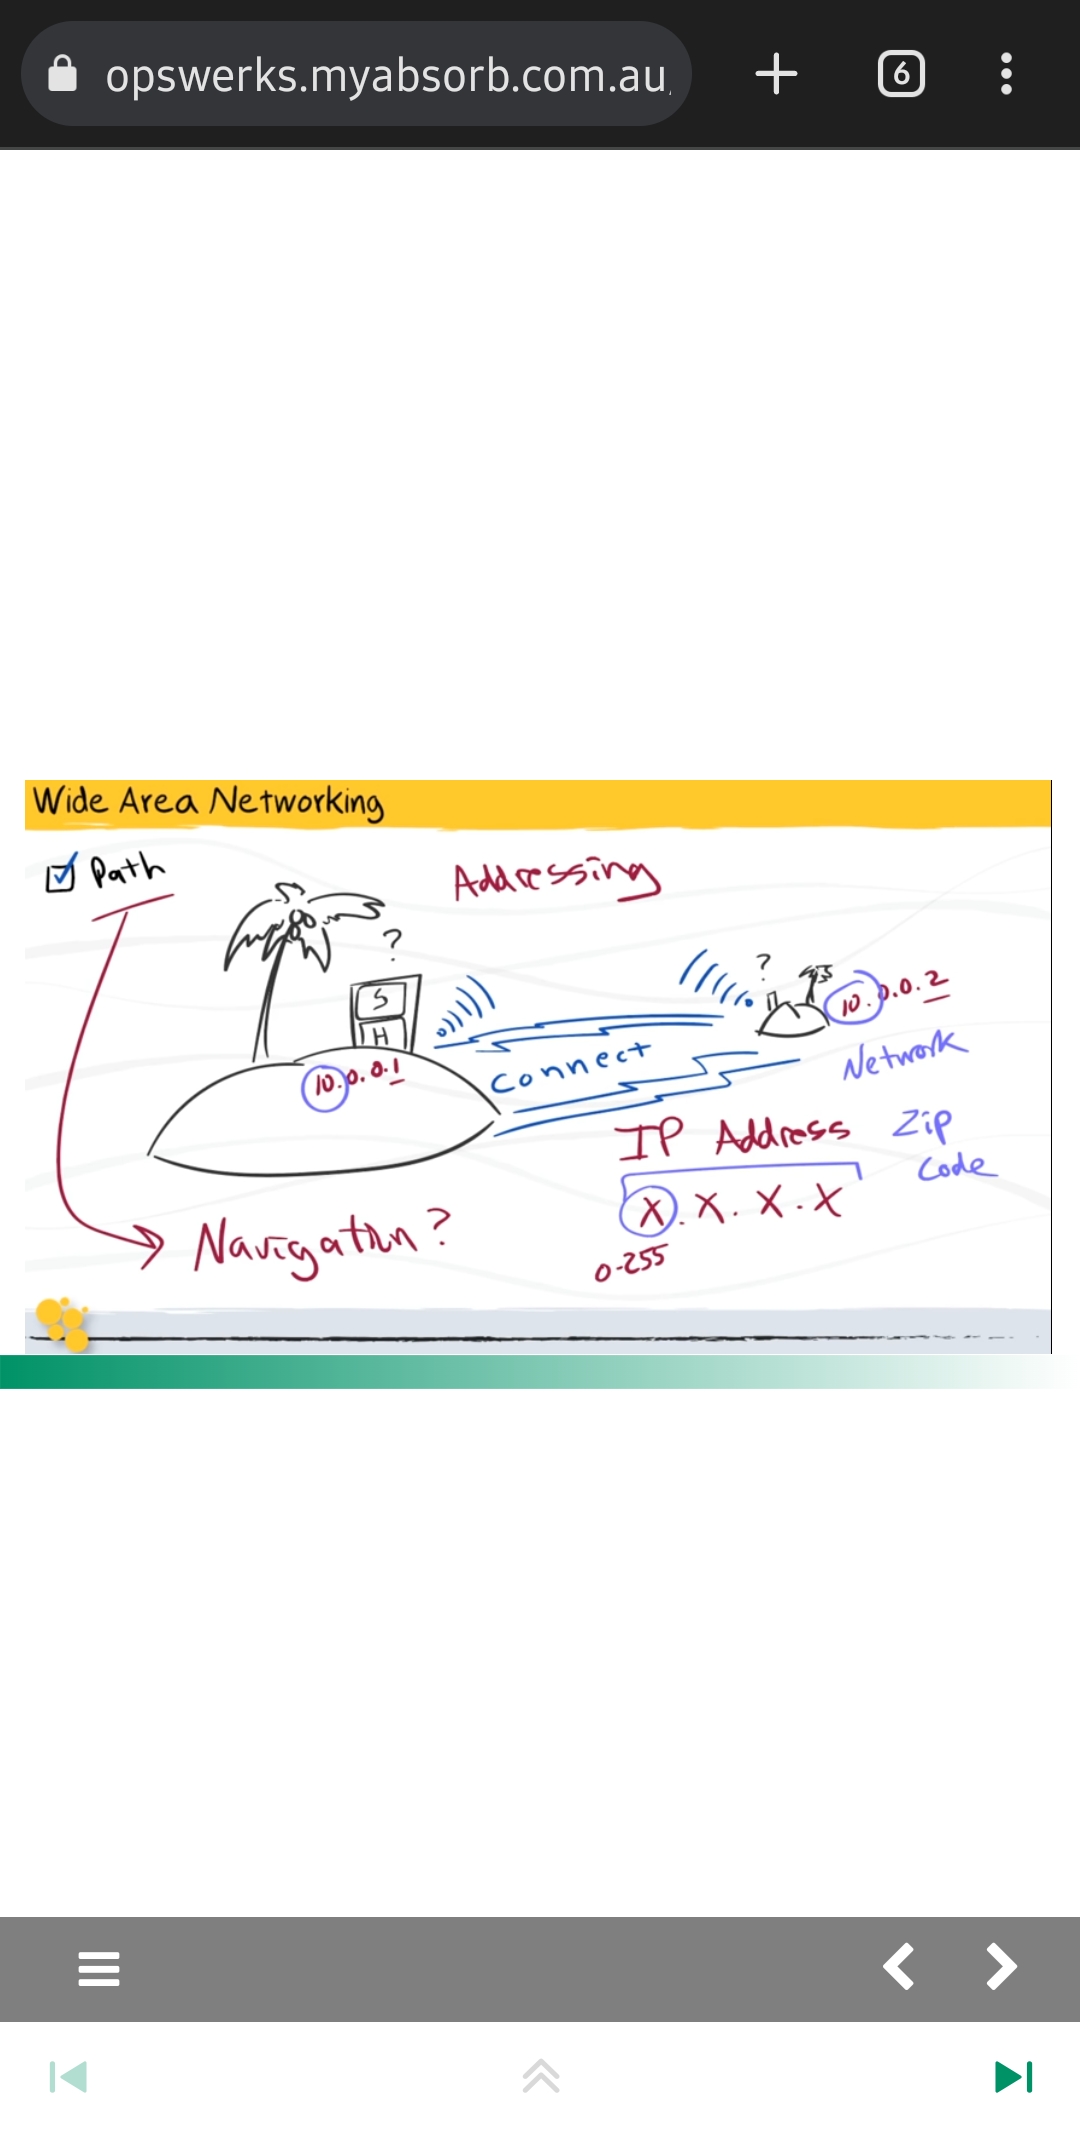 opswerks.myabsorb.com.au
6
Wide Area Networking
Path
Addressing
?
?
S
H
10.0.0.2
10.0.0.1
Connect
Network
IP Address
Zip
Code
X.X.X.X
Navigation?
0-255